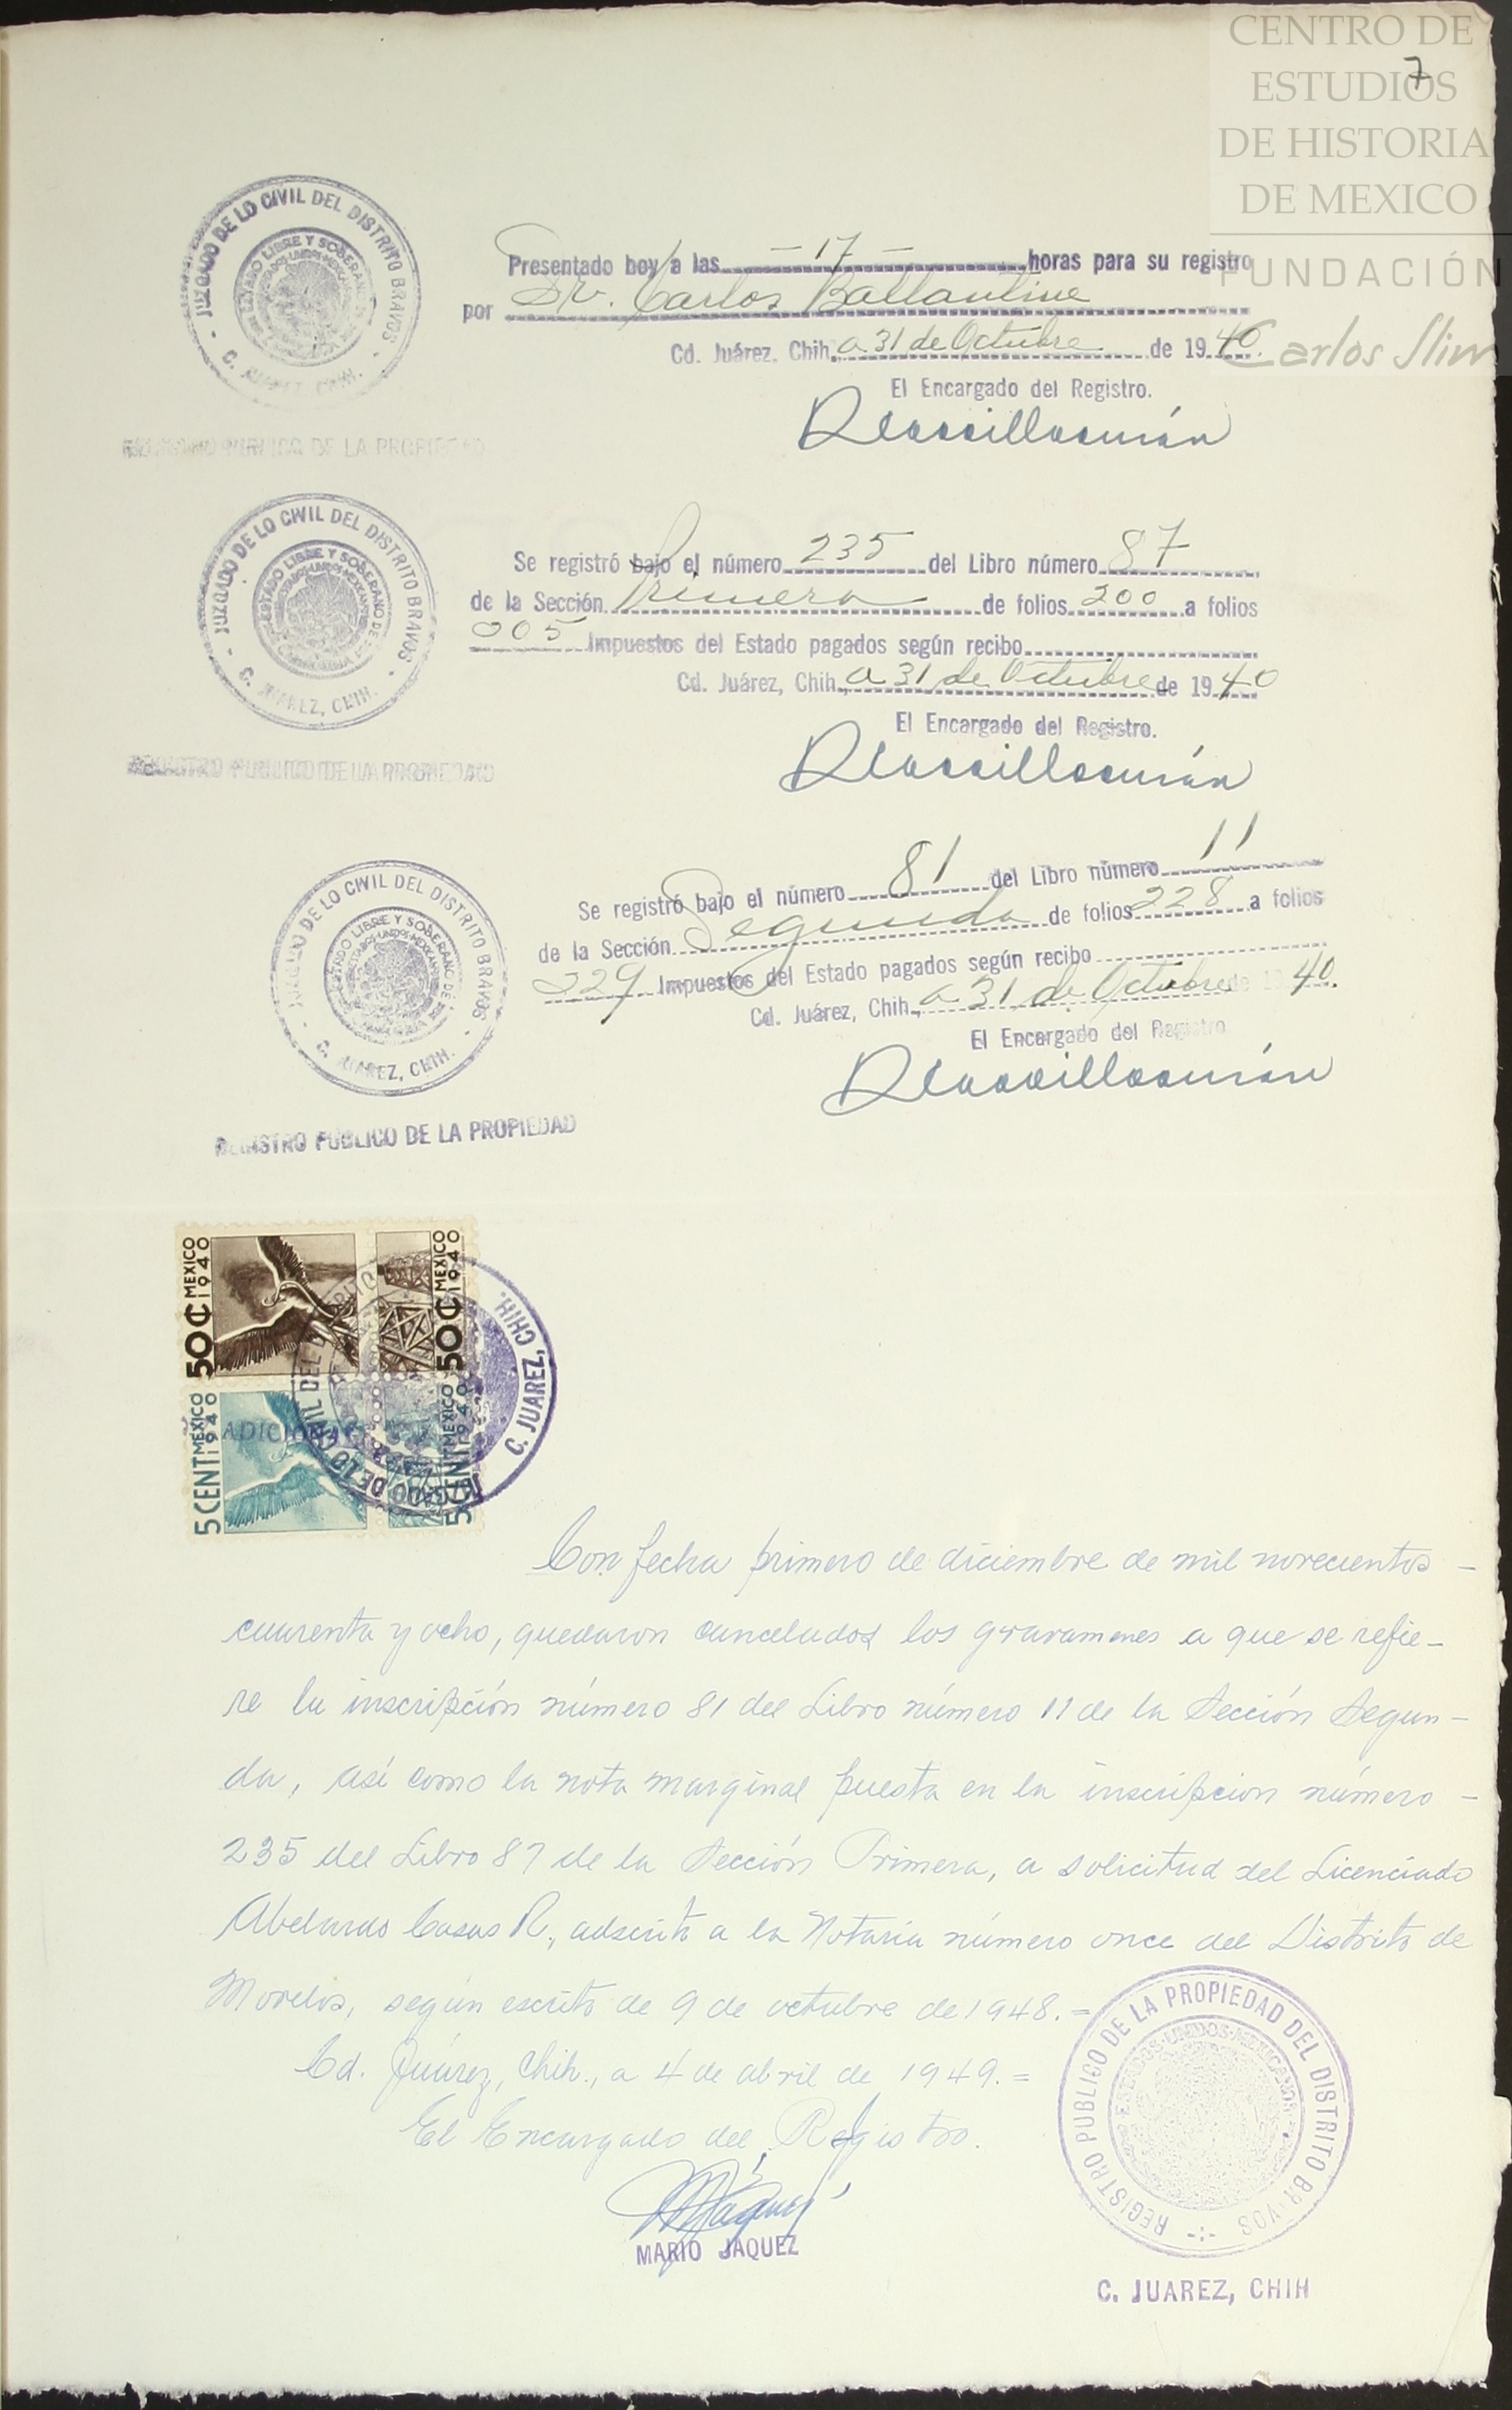 CENTRO DE
ESTUDIOS
DE HISTORIA
DE MEXICO
FUNDACIÓN
Carlos Slim
7
JUZGADO DE LO CIVIL DEL DISTRITO BRAVOS
ESTADO LIBRE Y SOBERANO
ESTADOS UNIDOS MEXICANOS
C. JUAREZ, CHIH.
REGISTRO PUBLICO DE LA PROPIEDAD
Presentado hoy a las - 17 - horas para su registro
por Sr. Carlos Ballantine
Cd. Juárez, Chih. a 31 de Octubre de 1940.
El Encargado del Registro.
JUZGADO DE LO CIVIL DEL DISTRITO BRAVOS
ESTADO LIBRE Y SOBERANO DE
ESTADOS UNIDOS MEXICANOS
C. JUAREZ, CHIH.
REGISTRO PUBLICO DE LA PROPIEDAD
Se registró bajo el número 235 del Libro número 87
de la Sección Primera de folios 200 a folios
205 Impuestos del Estado pagados según recibo
Cd. Juárez, Chih., a 31 de Octubre de 1940
El Encargado del Registro.
JUZGADO DE LO CIVIL DEL DISTRITO BRAVOS
ESTADO LIBRE Y SOBERANO DE
ESTADOS UNIDOS MEXICANOS
C. JUAREZ, CHIH.
REGISTRO PUBLICO DE LA PROPIEDAD
Se registró bajo el número 81 del Libro número 11
de la Sección Segunda de folios 228 a folios
229 Impuestos del Estado pagados según recibo
Cd. Juárez, Chih., a 31 de Octubre de 1940.
El Encargado del Registro
50 ¢ MEXICO 1940
50 ¢ MEXICO 1940
5 CENT. MEXICO 1940
5 CENT. MEXICO 1940
C. JUAREZ, CHIH.
Con fecha primero de diciembre de mil novecientos -
cuarenta y ocho, quedaron cancelados los gravamenes a que se refie-
re la inscripción número 81 del Libro número 11 de la Sección Segun-
da, así como la nota marginal puesta en la inscripcion número -
235 del Libro 87 de la Sección Primera, a solicitud del Licenciado
Abelardo Casas R., adscrito a la Notaría número once del Distrito de
Morelos, según escrito de 9 de octubre de 1948.=
Cd. Juárez, Chih., a 4 de abril de 1949.=
El Encargado del Registro.
MARIO JAQUEZ
REGISTRO PUBLICO DE LA PROPIEDAD DEL DISTRITO BRAVOS
ESTADOS UNIDOS MEXICANOS
C. JUAREZ, CHIH